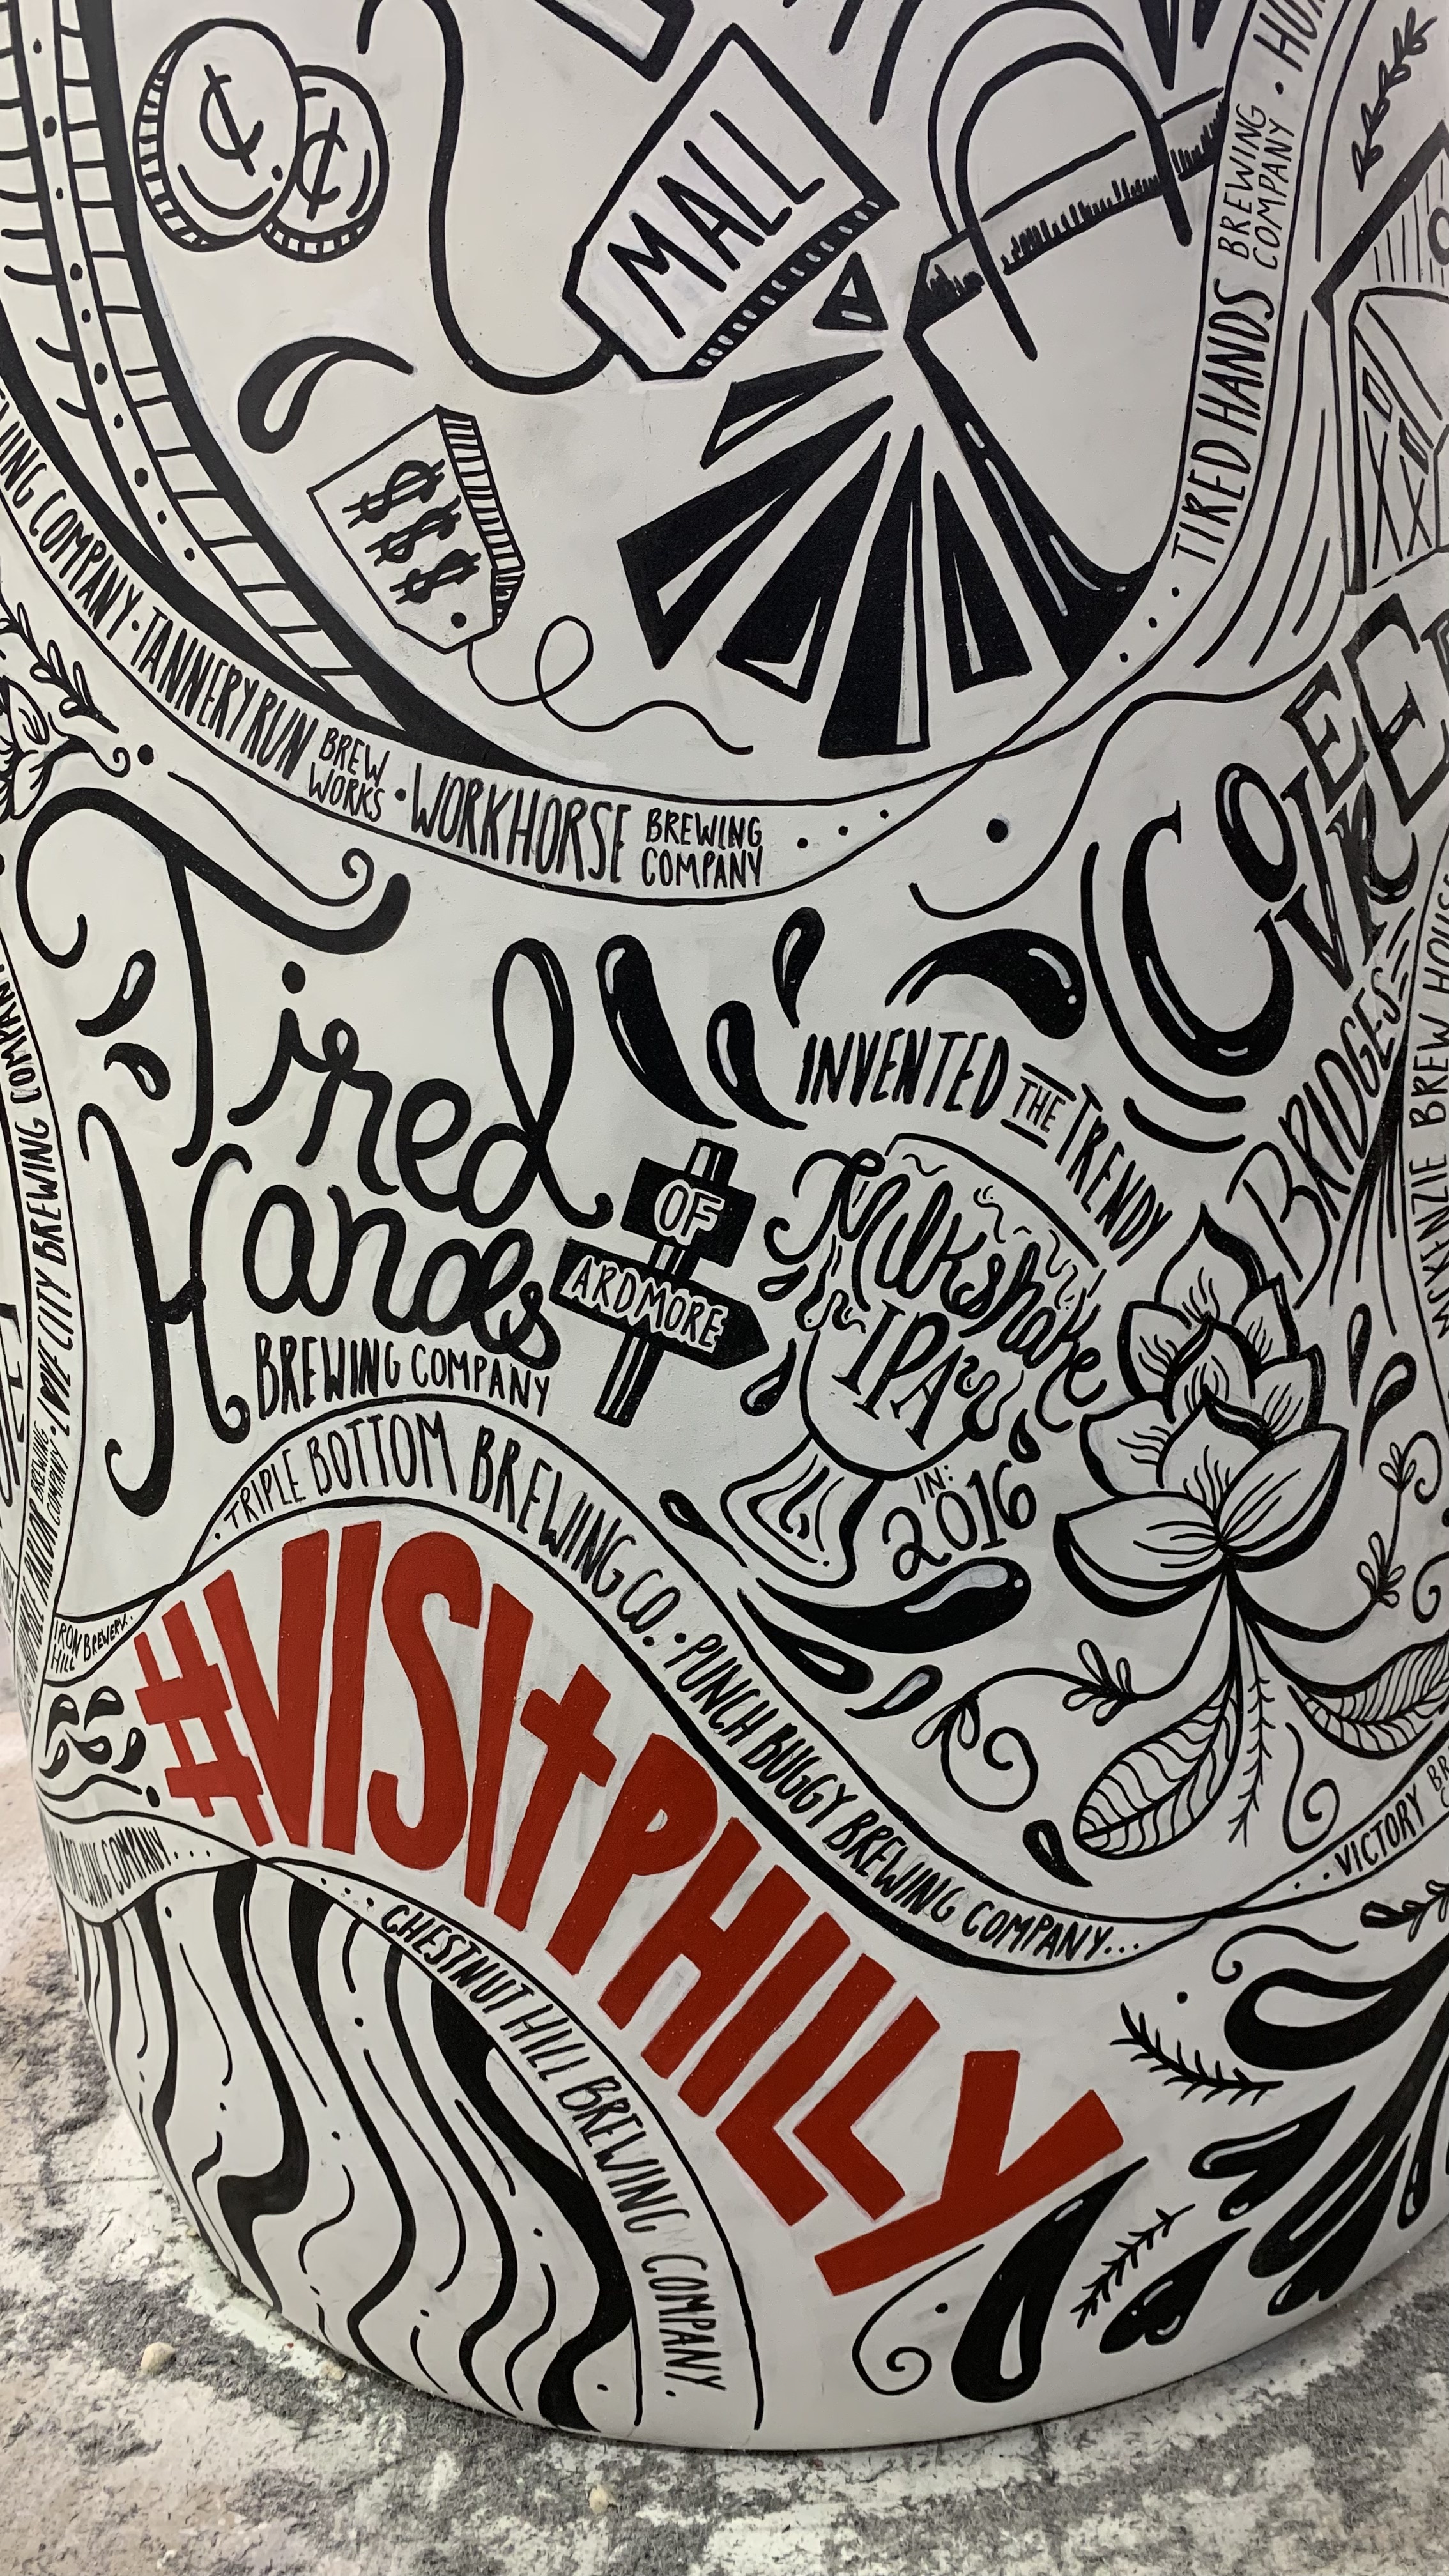 ¢
¢
MALL
$$$
COMPANY · TANNERY RUN BREW WORKS · WORKHORSE BREWING COMPANY
TIRED HANDS BREWING COMPANY ·
COVERED
BRIDGES
Tired
Hands
BREWING COMPANY
OF
ARDMORE
INVENTED THE TRENDY
Milkshake
IPA
IN:
2016
LOVE CITY BREWING COMPANY
BREW HOUSE
· TRIPLE BOTTOM BREWING CO. · PUNCH BUGGY BREWING COMPANY...
IRON HILL BREWERY.
#VISItPHILLY
BREWING COMPANY....
.... CHESTNUT HILL BREWING COMPANY.
.. VICTORY